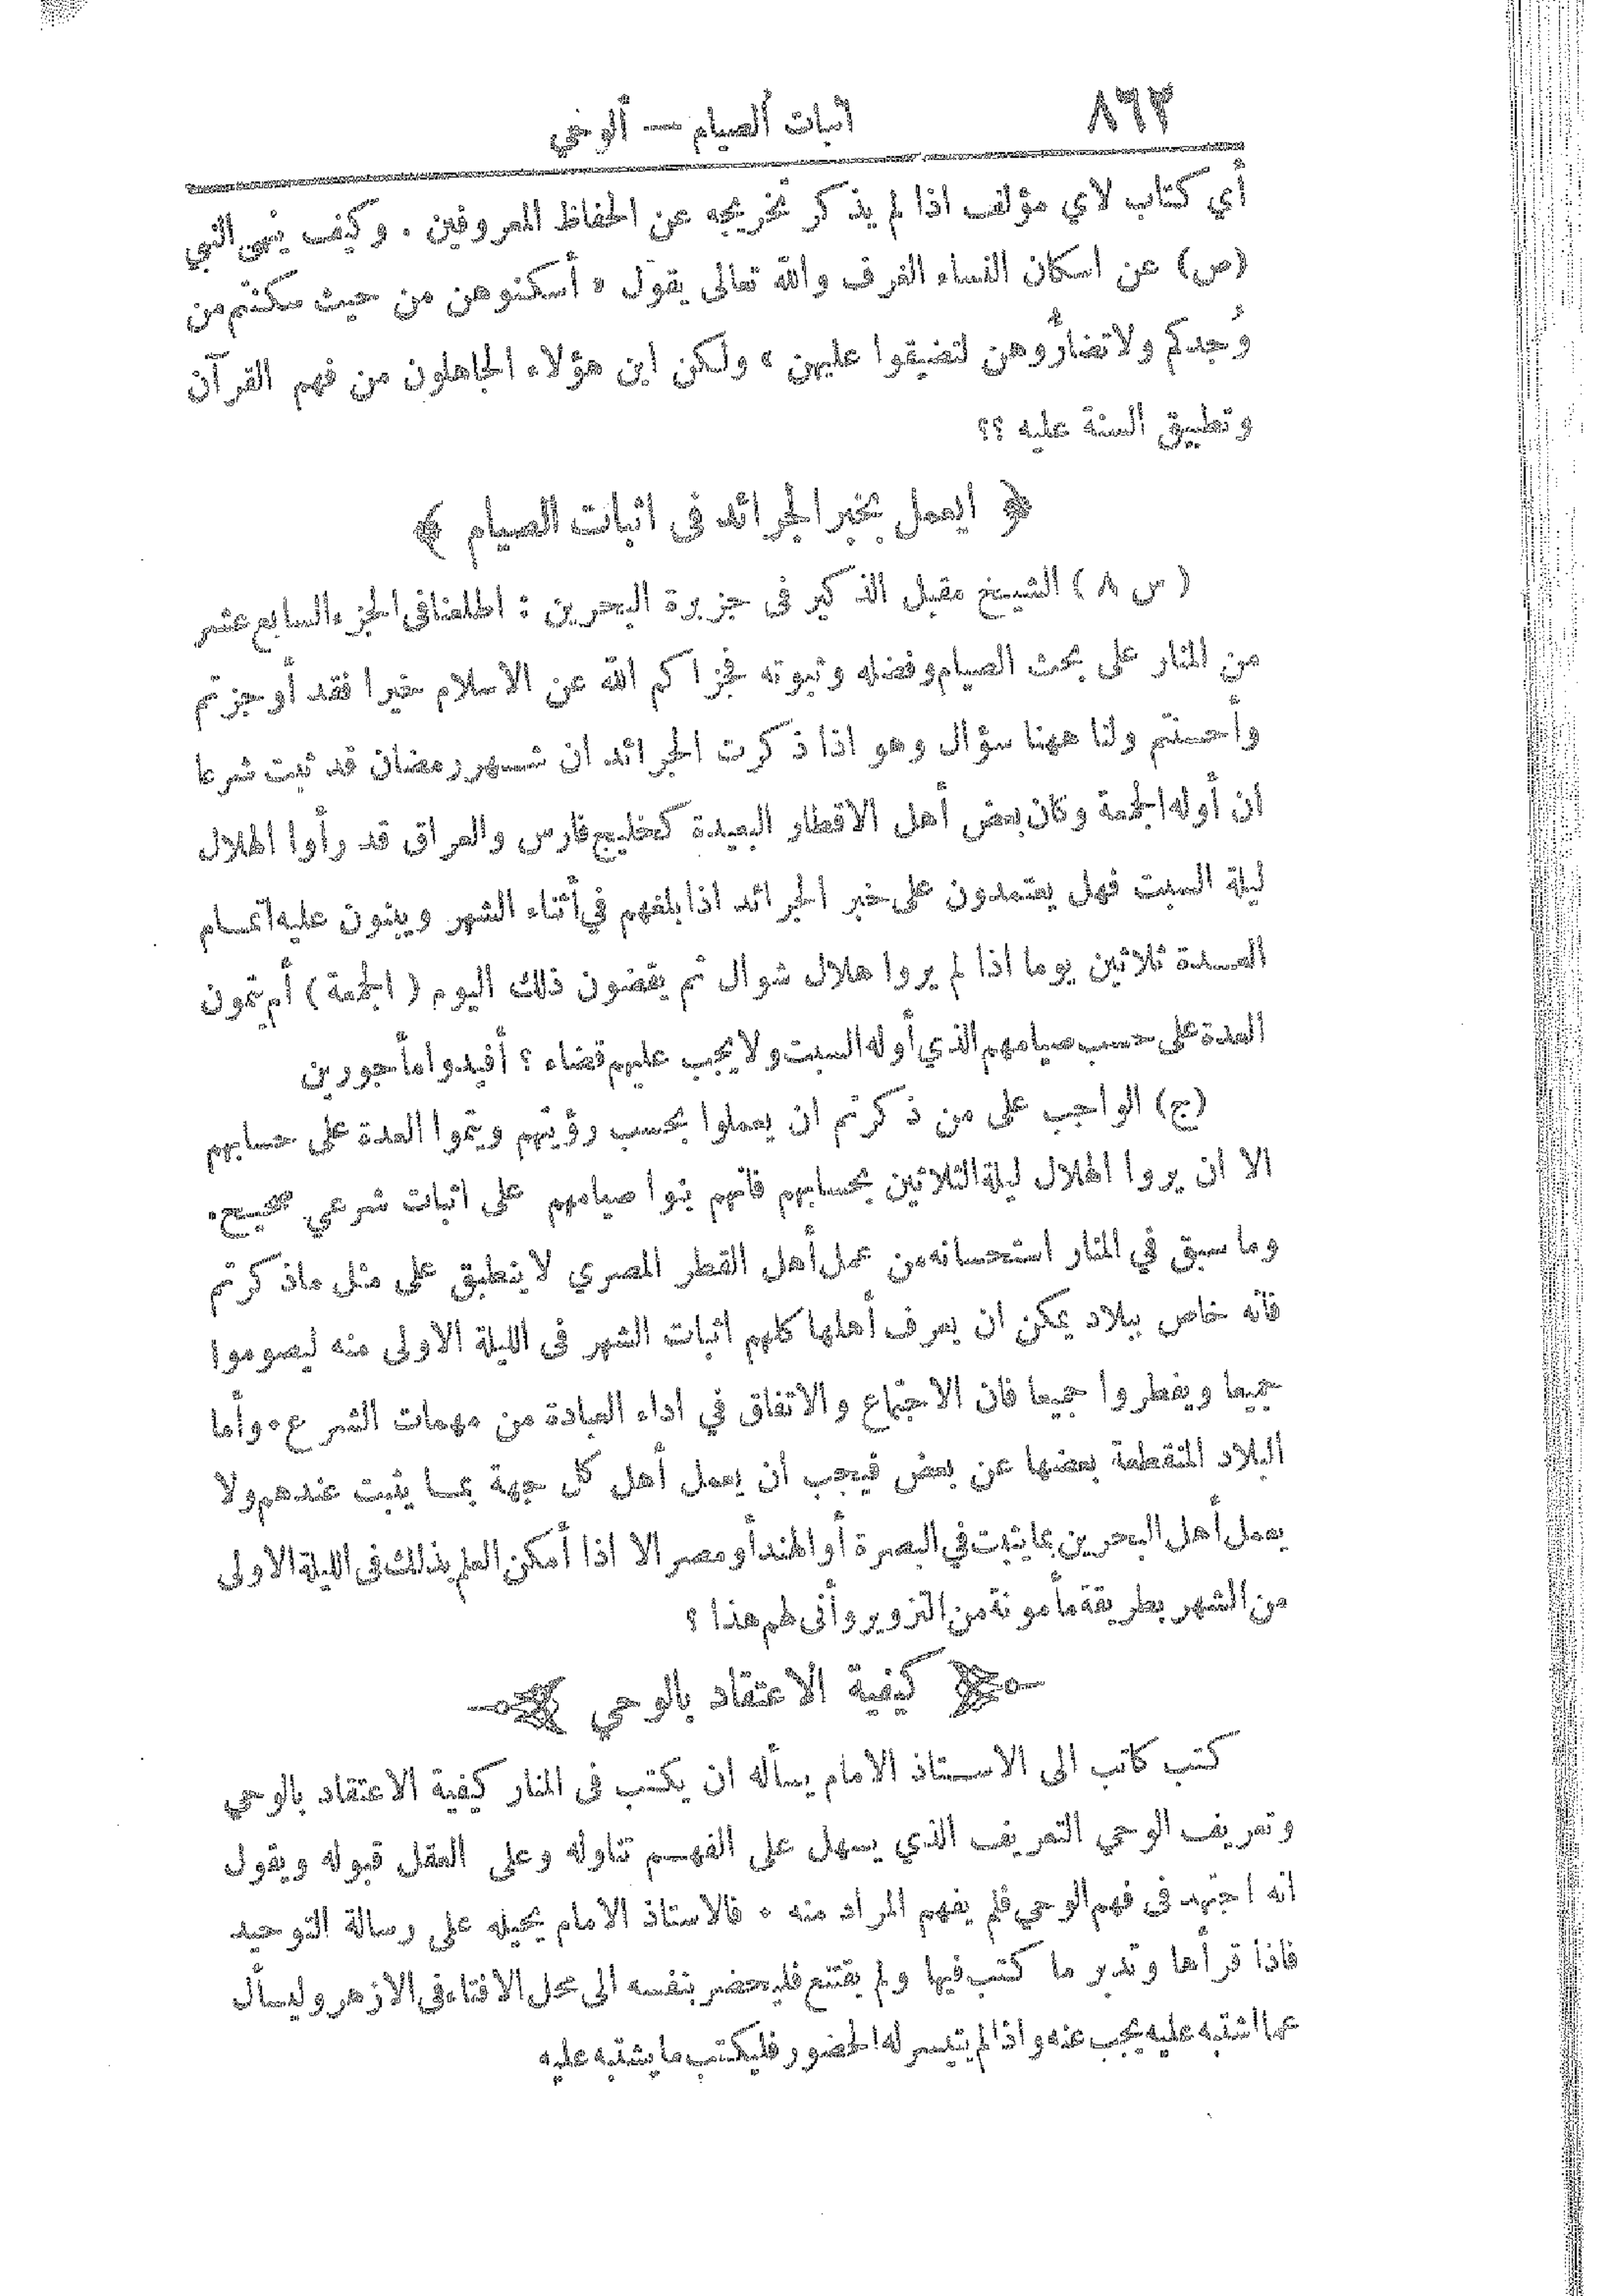 ٨٦٢
اثبات الصيام — الوحي
أي كتاب لاي مؤلف اذا لم يذكر تخريجه عن الحفاظ المعروفين . وكيف ينهى النبي
(ص) عن اسكان النساء الغرف والله تعالى يقول « أسكنوهن من حيث سكنتم من
وُجدكم ولا تضارُّوهن لتضيقوا عليهن » ولكن اين هؤلاء الجاهلون من فهم القرآن
وتطبيق السنة عليه ؟؟
﴿ العمل بخبر الجرائد فى اثبات الصيام ﴾
( س ٨ ) الشيخ مقبل الذكير فى جزيرة البحرين : اطلعنا فى الجزء السابع عشر
من المنار على بحث الصيام وفضله وثبوته فجزاكم الله عن الاسلام خيرا فقد أوجزتم
وأحسنتم ولنا ههنا سؤال وهو اذا ذكرت الجرائد ان شهر رمضان قد ثبت شرعا
ان أوله الجمعة وكان بعض أهل الاقطار البعيدة كخليج فارس والعراق قد رأوا الهلال
ليلة السبت فهل يعتمدون على خبر الجرائد اذا بلغهم في أثناء الشهر ويبنون عليه اتمام
العدة ثلاثين يوما اذا لم يروا هلال شوال ثم يقضون ذلك اليوم ( الجمعة ) أم يتمون
العدة على حسب صيامهم الذي أوله السبت ولا يجب عليهم قضاء ؟ أفيدوا مأجورين
(ج) الواجب على من ذكرتم ان يعملوا بحسب رؤيتهم ويتموا العدة على حسابهم
الا ان يروا الهلال ليلة الثلاثين بحسابهم فانهم بنوا صيامهم على اثبات شرعي صحيح.
وما سبق في المنار استحسانه من عمل أهل القطر المصري لا ينطبق على مثل ماذكرتم
فانه خاص ببلاد يمكن ان يعرف أهلها كلهم اثبات الشهر فى الليلة الاولى منه ليصوموا
جميعا ويفطروا جميعا فان الاجتماع والاتفاق في اداء العبادة من مهمات الشرع . وأما
البلاد المنقطعة بعضها عن بعض فيجب أن يعمل أهل كل جهة بما يثبت عندهم ولا
يعمل أهل البحرين بما يثبت في البصرة أو الهند أو مصر الا اذا أمكن العلم بذلك فى الليلة الاولى
من الشهر بطريقة مأمونة من التزوير وأنى لهم هذا ؟
كيفية الاعتقاد بالوحي
كتب كاتب الى الاستاذ الامام يسأله ان يكتب فى المنار كيفية الاعتقاد بالوحي
وتعريف الوحي التعريف الذي يسهل على الفهم تناوله وعلى العقل قبوله ويقول
انه اجتهد فى فهم الوحي فلم يفهم المراد منه . فالاستاذ الامام يحيله على رسالة التوحيد
فاذا قرأها وتدبر ما كتب فيها ولم يقتنع فليحضر بنفسه الى محل الافتاء فى الازهر وليسأل
عما اشتبه عليه يجب عنه واذا لم يتيسر له الحضور فليكتب ما يشتبه عليه